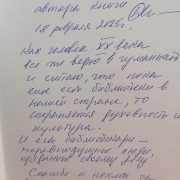 автора книги
18 февраля 2025г.
Как человек XX века
все же верю в гуманизм
и считаю, что пока
еще есть библиотеки в
нашей стране, то
сохранятся духовность и
культура.
И есть библиотекари –
неравнодушные люди,
преданные своему делу!
Спасибо и поклон